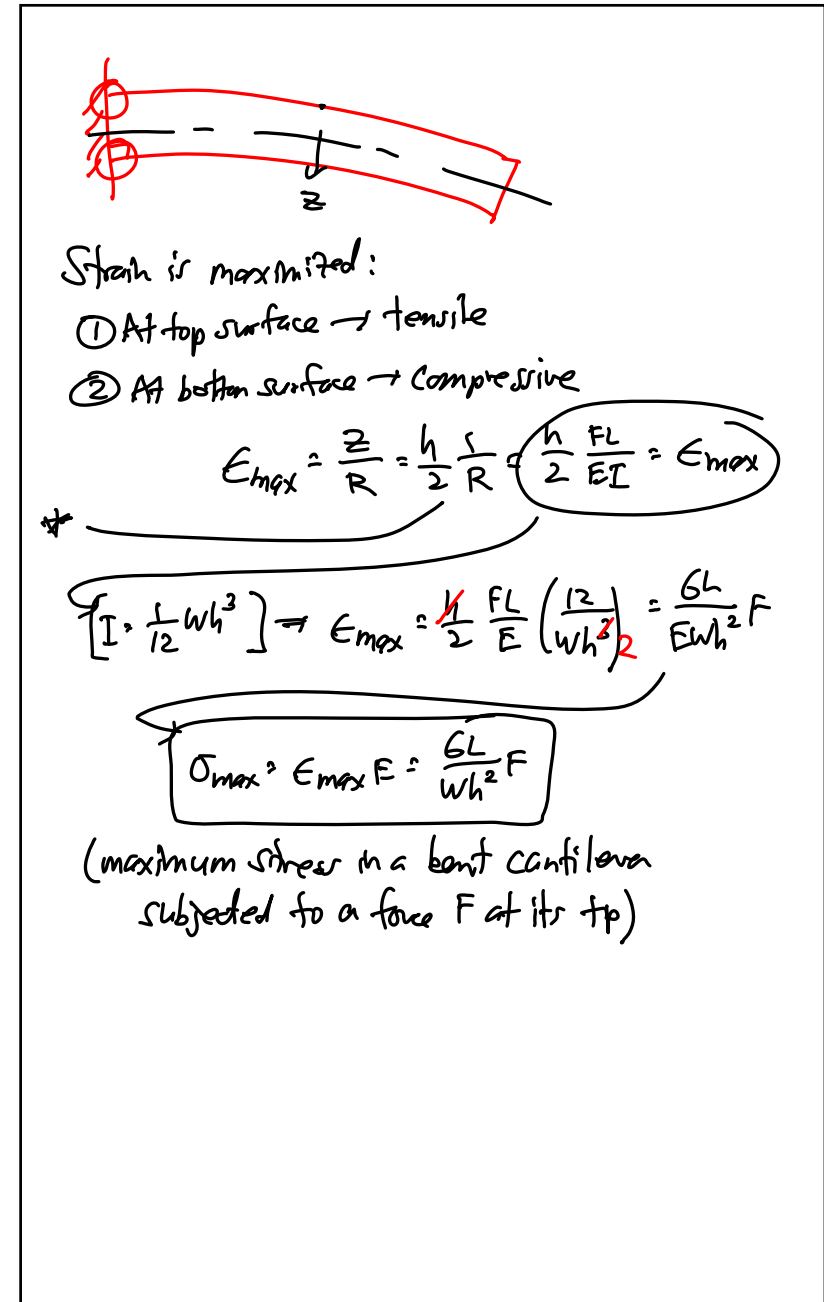 Z
Strain is maximized:
① At top surface → tensile
② At bottom surface → compressive
ϵmax = Z/R = h/2 1/R = h/2 FL/EI = ϵmax
*
[I = 1/12 Wh³] ⇒ ϵmax = h/2 FL/E (12/Wh³) 2 = 6L/EWh² F
σmax = ϵmax E = 6L/Wh² F
(maximum stress in a bent cantilever
subjected to a force F at its tip)